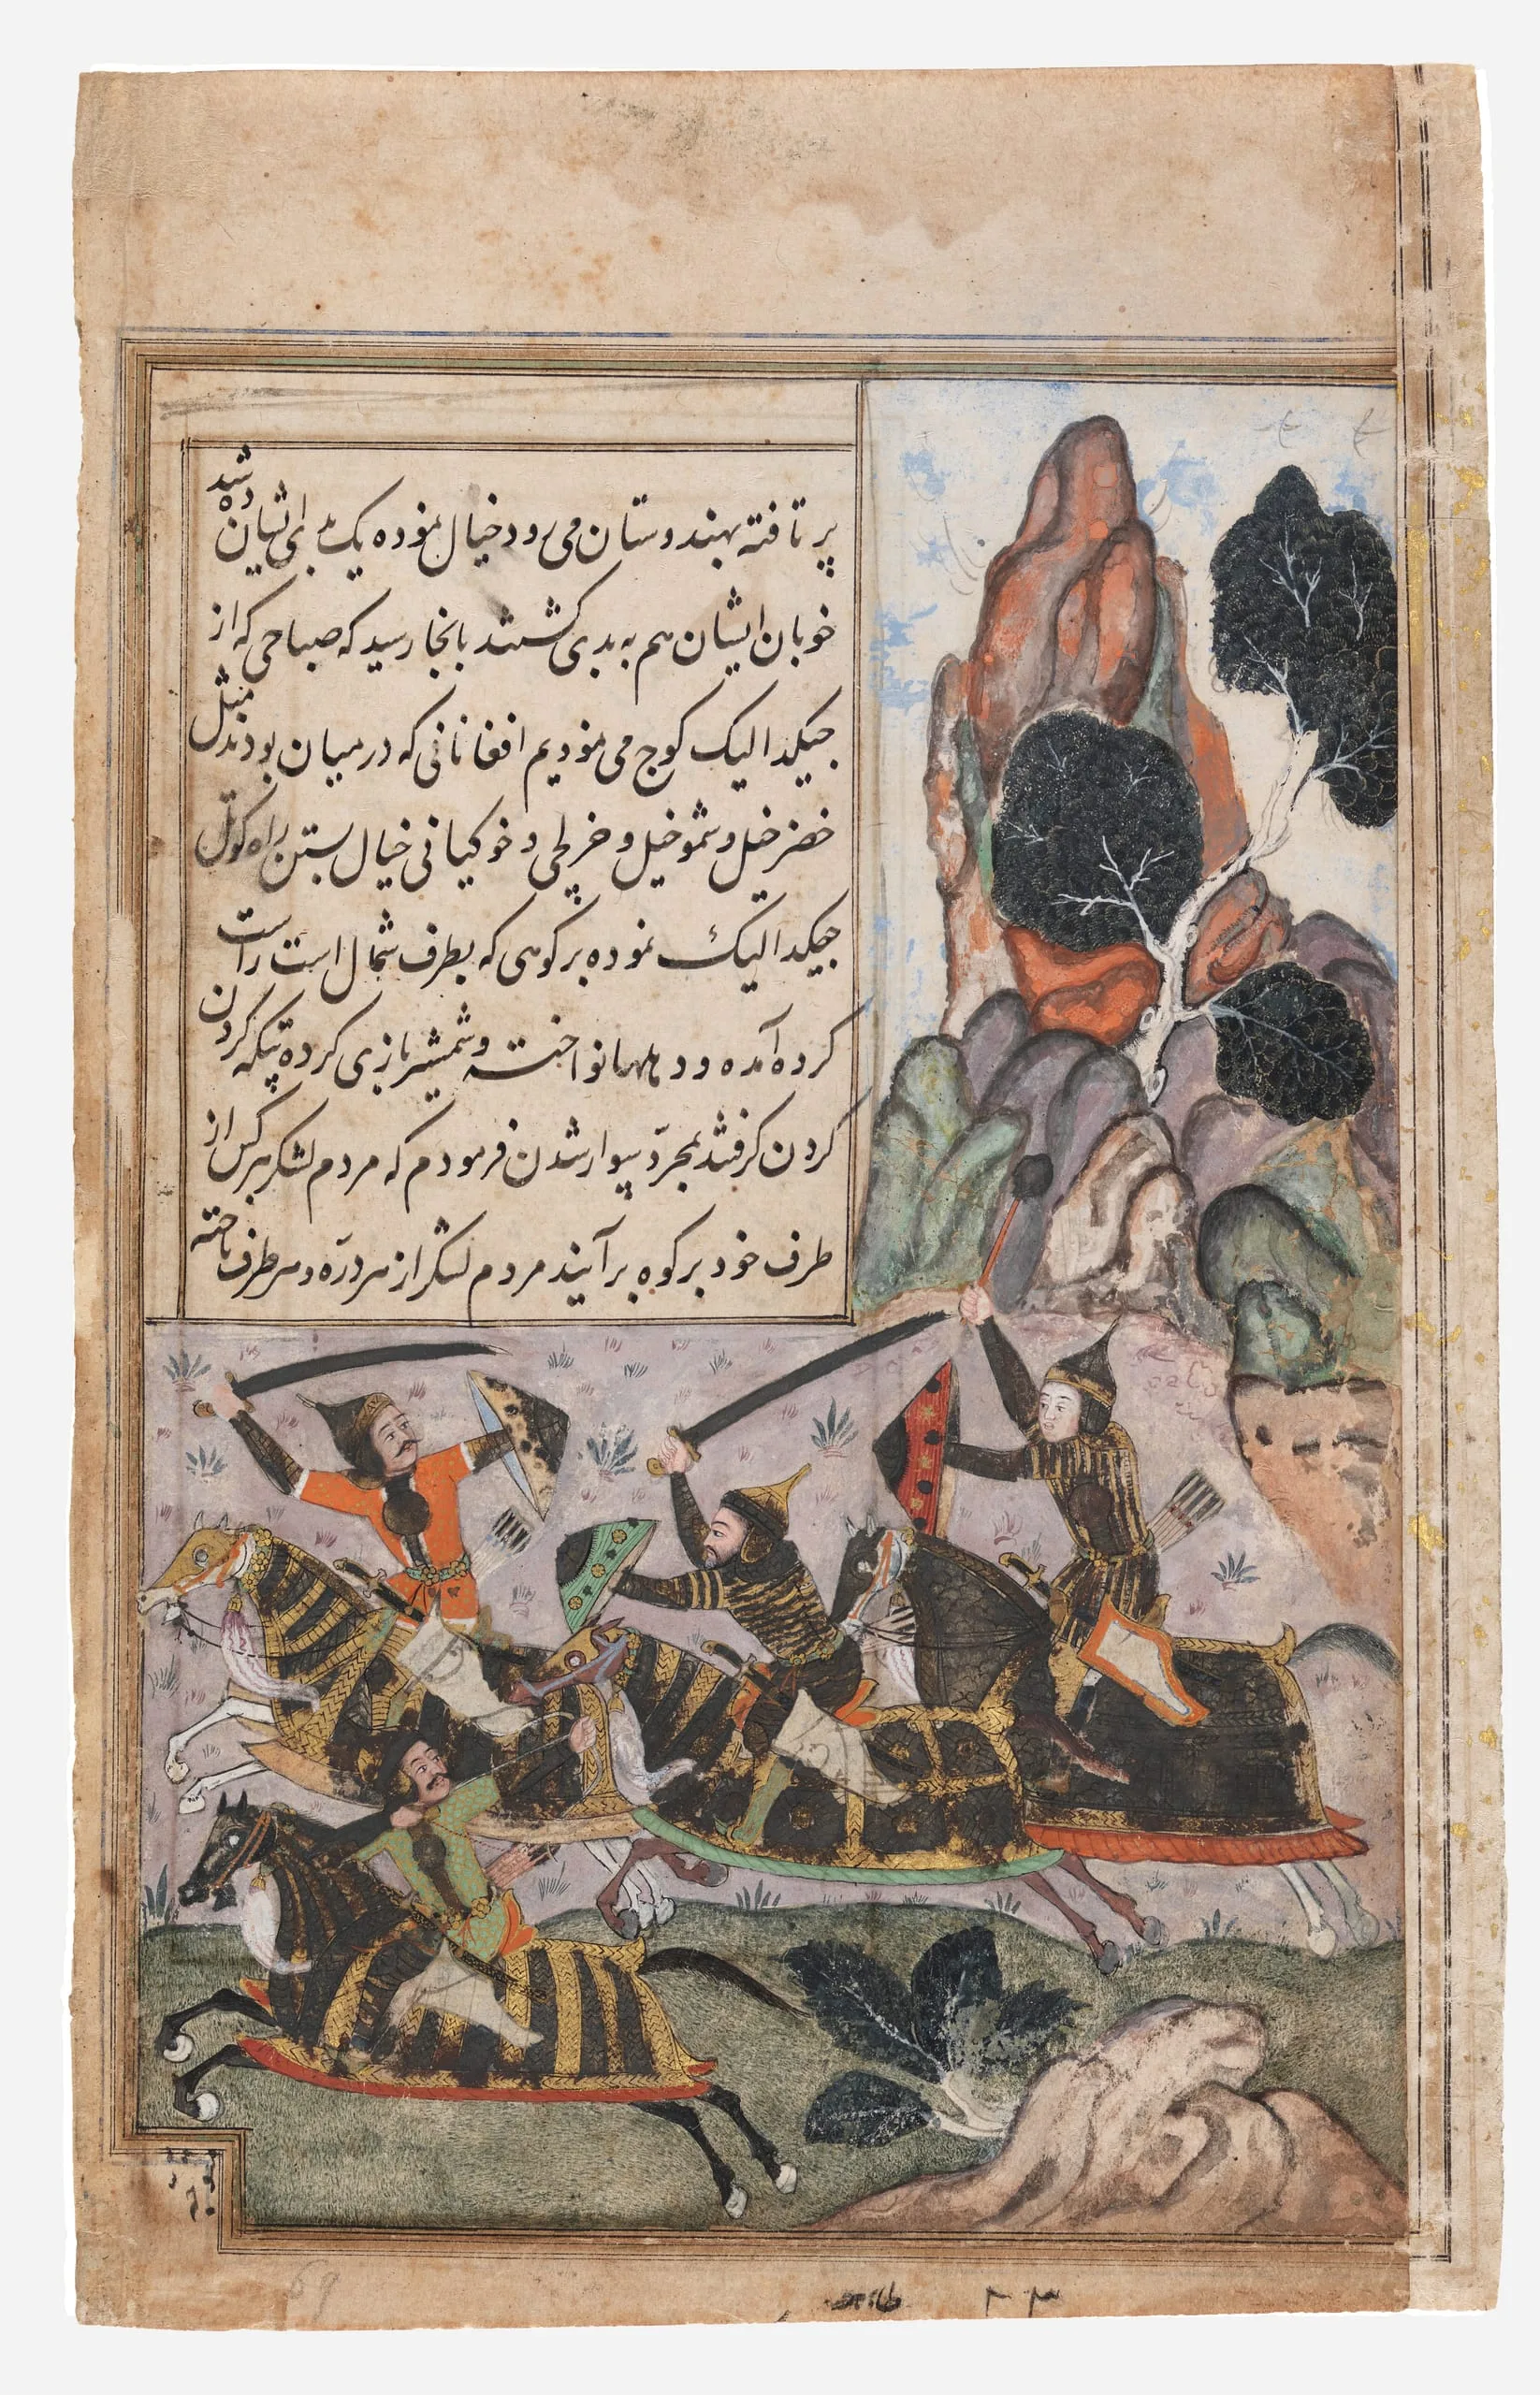 پرتافته بهندوستان می رود خیال نموده یک بدای ایشان ده شد
خوبان ایشان هم به بدی کشیدند بانجا رسید که صباحی که از
جیکدالیک کوچ می نمودیم افغانانی که در میان بودند مثل
خضر خیل و شمو خیل و خرلچی و خوکیانی خیال بستن راه کوتل
جیکدالیک نموده بر کوهی که بطرف شمال است راست
کرده آمده و دهلها نواخته و شمشیر بازی کرده تپکه کردن
کردن گرفتند بمجرد سوار شدن فرمودم که مردم لشکر هر کس از
طرف خود بر کوه برآیند مردم لشکر از هر دره و هر طرف تاخته
69
۲۳